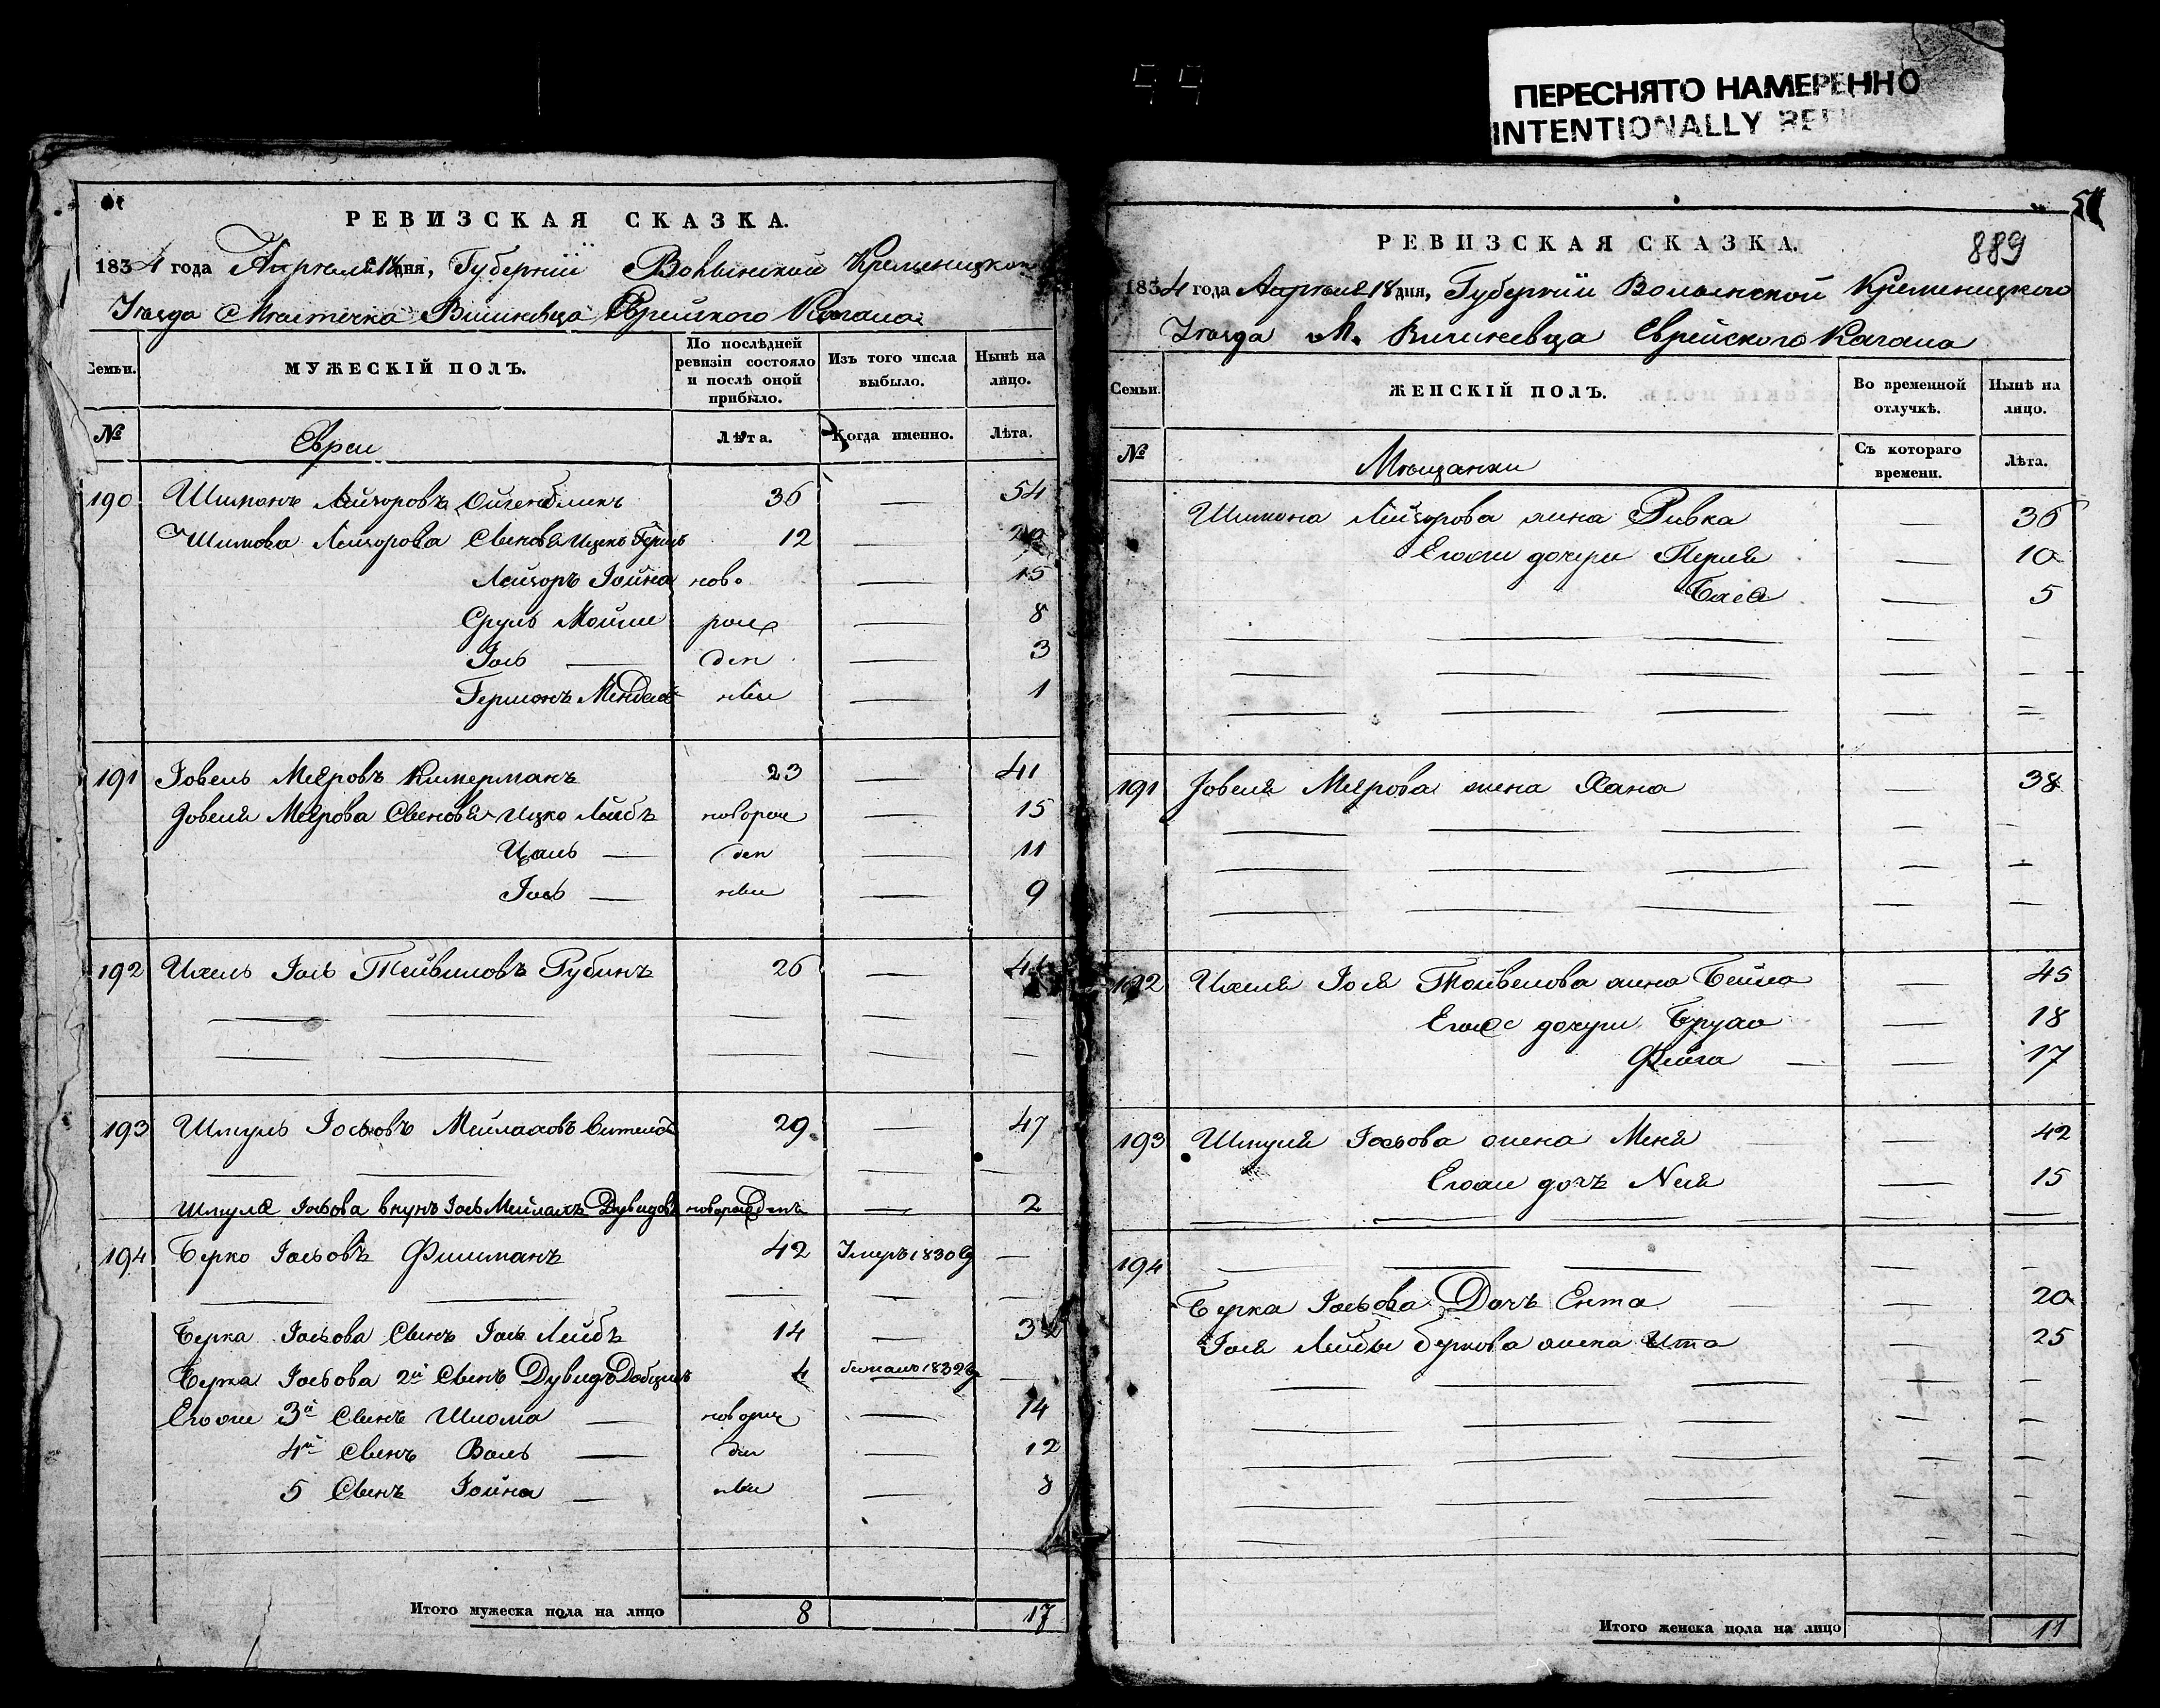 99
ПЕРЕСНЯТО НАМЕРЕННО
INTENTIONALLY
РЕВИЗСКАЯ СКАЗКА.
1834 года Апреля 18 дня, Губернїи Волынской Кременицкого
Уезда Местечка Вишневца Еврейского Кагала
Семьи.
МУЖЕСКІЙ ПОЛЪ.
По послѣдней ревизіи состояло и послѣ оной прибыло.
Изъ того числа выбыло.
Нынѣ на лицо.
№
Евреи
Лѣта.
Когда именно.
Лѣта.
190 Шимонъ Лейзоровъ Ойгенбликъ 36 — 54
Шимона Лейзорова Сыновья Ицекъ Гершъ 12 —
Лейзоръ Іойна ново — 15
Сруль Мойше рож — 8
Іось — ден — 3
Гершонъ Мендель ные — 1
191 Іовель Меровъ Кимерманъ 23 — 41
Іовеля Мерова Сыновья Ицко Лейбъ новорож — 15
Ицаль — ден — 11
Іось — ные — 9
192 Ихель Іось Тейвиловъ Рубинъ 26 —
193 Шмуль Іосьовъ Мейлаховъ 29 — 47
Шмуля Іосьова внукъ Іось Мейлахъ Дувидовъ новорожденъ — 2
194 Берко Іосьовъ Фишманъ 42 Умеръ 1830 —
Берка Іосьова Сынъ Іось Лейбъ 14 —
Берка Іосьова 2й Сынъ Дувидъ 4 1832 —
Егоже 3й Сынъ Шлома — новорож — 14
4й Сынъ Воль — ден — 12
5 Сынъ Іойна — ные — 8
Итого мужеска пола на лицо 8 17
889
РЕВИЗСКАЯ СКАЗКА.
1834 года Апреля 18 дня, Губернїи Волынской Кременицкого
Уезда М. Вишневца Еврейского Кагала
Семьи.
ЖЕНСКІЙ ПОЛЪ.
Во временной отлучкѣ.
Нынѣ на лицо.
№
Мещанки
Съ котораго времени.
Лѣта.
Шимона Лейзорова жена Ривка — 36
Егоже дочери Перля — 10
Бася — 5
191 Іовеля Мерова жена Хана — 38
192 Ихиля Іося Тойвелова жена Бейла — 45
Егоже дочери Бруха — 18
Фейга — — 17
193 Шмуля Іосьова жена Меня — 42
Егоже дочъ — 15
194
Берка Іосьова Дочъ Ента — 20
Іося Лейбы беркова жена Ита — 25
Итого женска пола на лицо 11